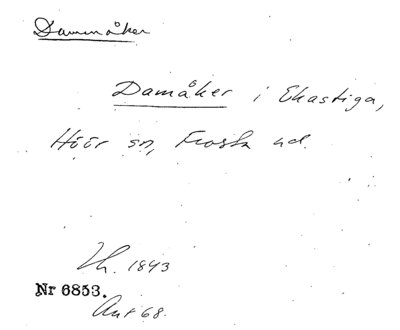 Dammåker
Damåker i Ekastiga,
Höör sn, Frosta hd.
Lh. 1843
Nr 6853.
Ant 68.